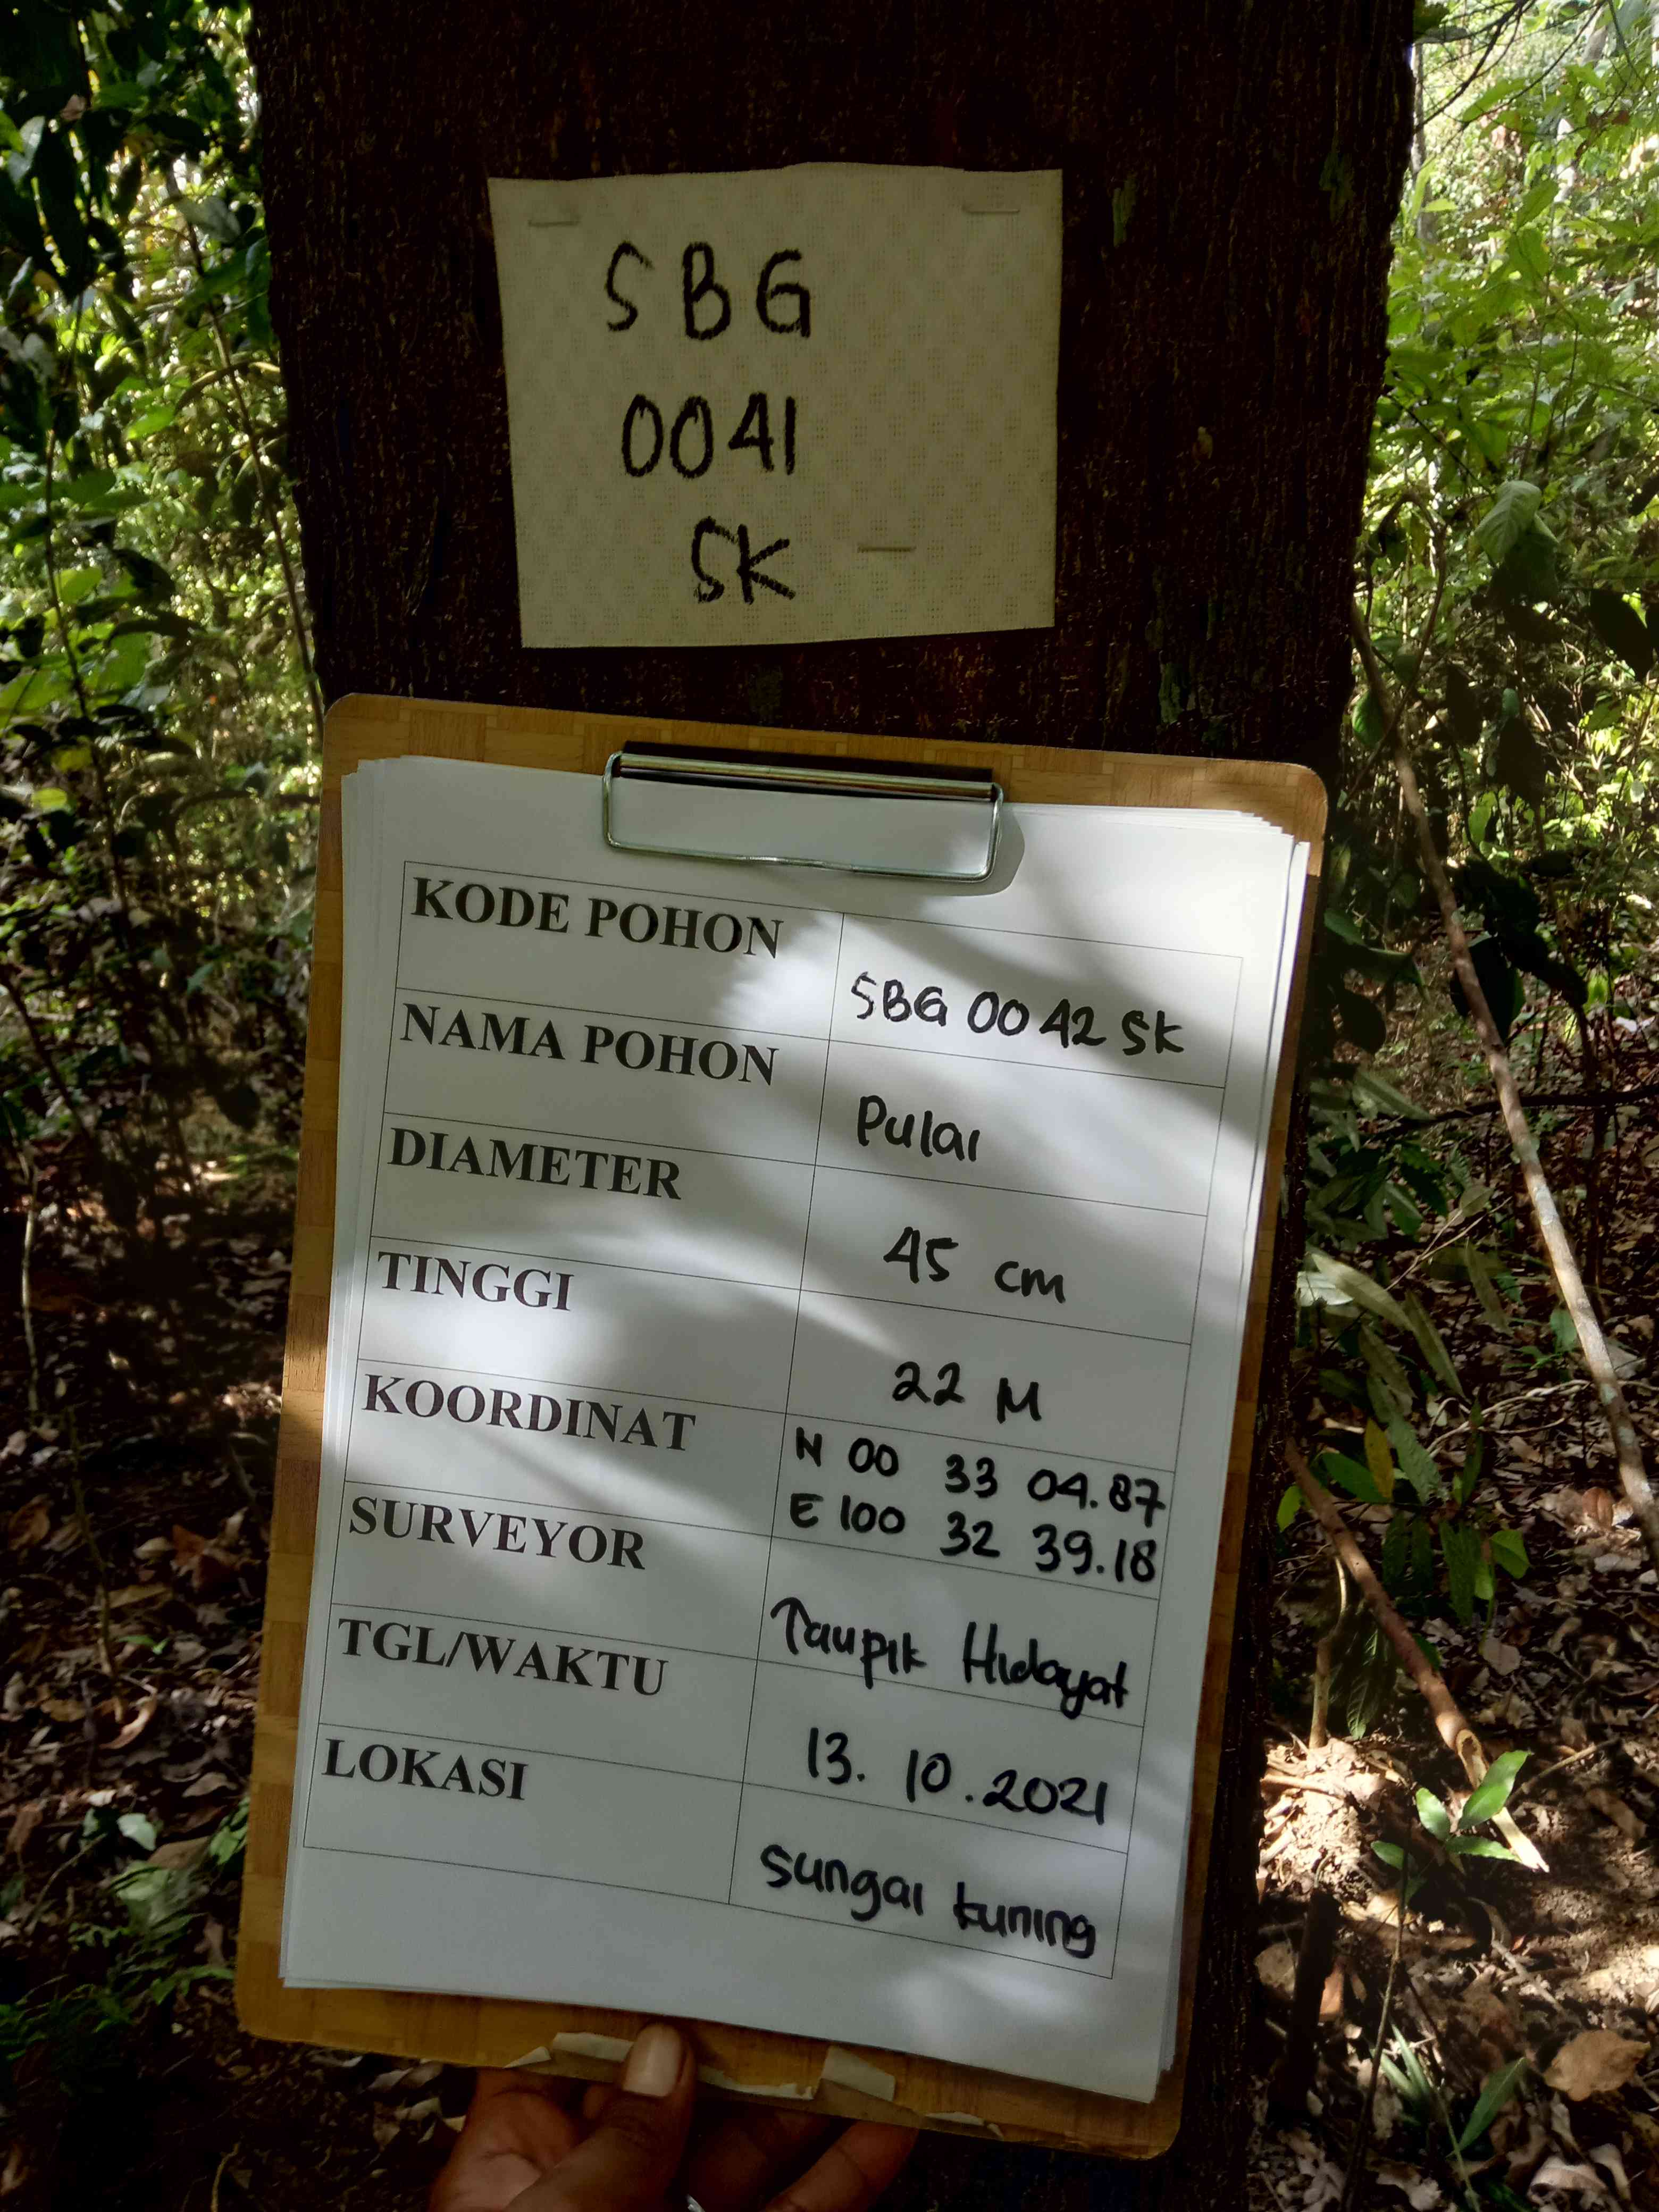 SBG
0041
SK
KODE POHON SBG 0042 SK
NAMA POHON Pulai
DIAMETER 45 cm
TINGGI 22 M
KOORDINAT N 00 33 04.87
E 100 32 39.18
SURVEYOR Taupik Hidayat
TGL/WAKTU 13.10.2021
LOKASI Sungai kuning